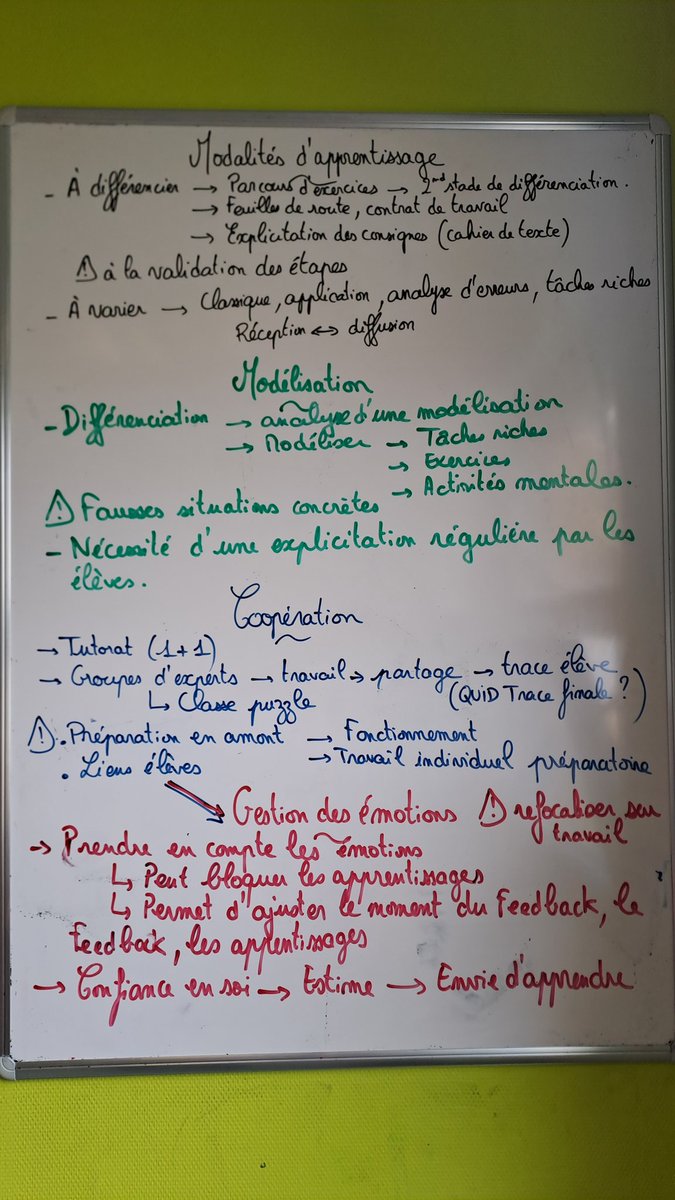 Modalités d'apprentissage
- À différencier → Parcours d'exercices → 2nd stade de différenciation.
→ Feuilles de route, contrat de travail
→ Explicitation des consignes (cahier de texte)
⚠ à la validation des étapes
- À varier → Classique, application, analyse d'erreurs, tâches riches
Réception ↔ diffusion
Modélisation
- Différenciation → analyse d'une modélisation
→ Modéliser → Tâches riches
→ Exercices
→ Activités mentales.
⚠ Fausses situations concrètes
- Nécessité d'une explicitation réguliére par les
élèves.
Coopération
→ Tutorat (1+1)
→ Groupes d'experts → travail → partage → trace élève
↳ Classe puzzle (QUID Trace finale ?)
⚠ • Préparation en amont → Fonctionnement
• Liens élèves → Travail individuel préparatoire
Gestion des émotions ⚠ refocaliser sur
travail
→ Prendre en compte les émotions
↳ Peut bloquer les apprentissages
↳ Permet d'ajuster le moment du Feedback, le
feedback, les apprentissages
→ Confiance en soi → Estime → Envie d'apprendre